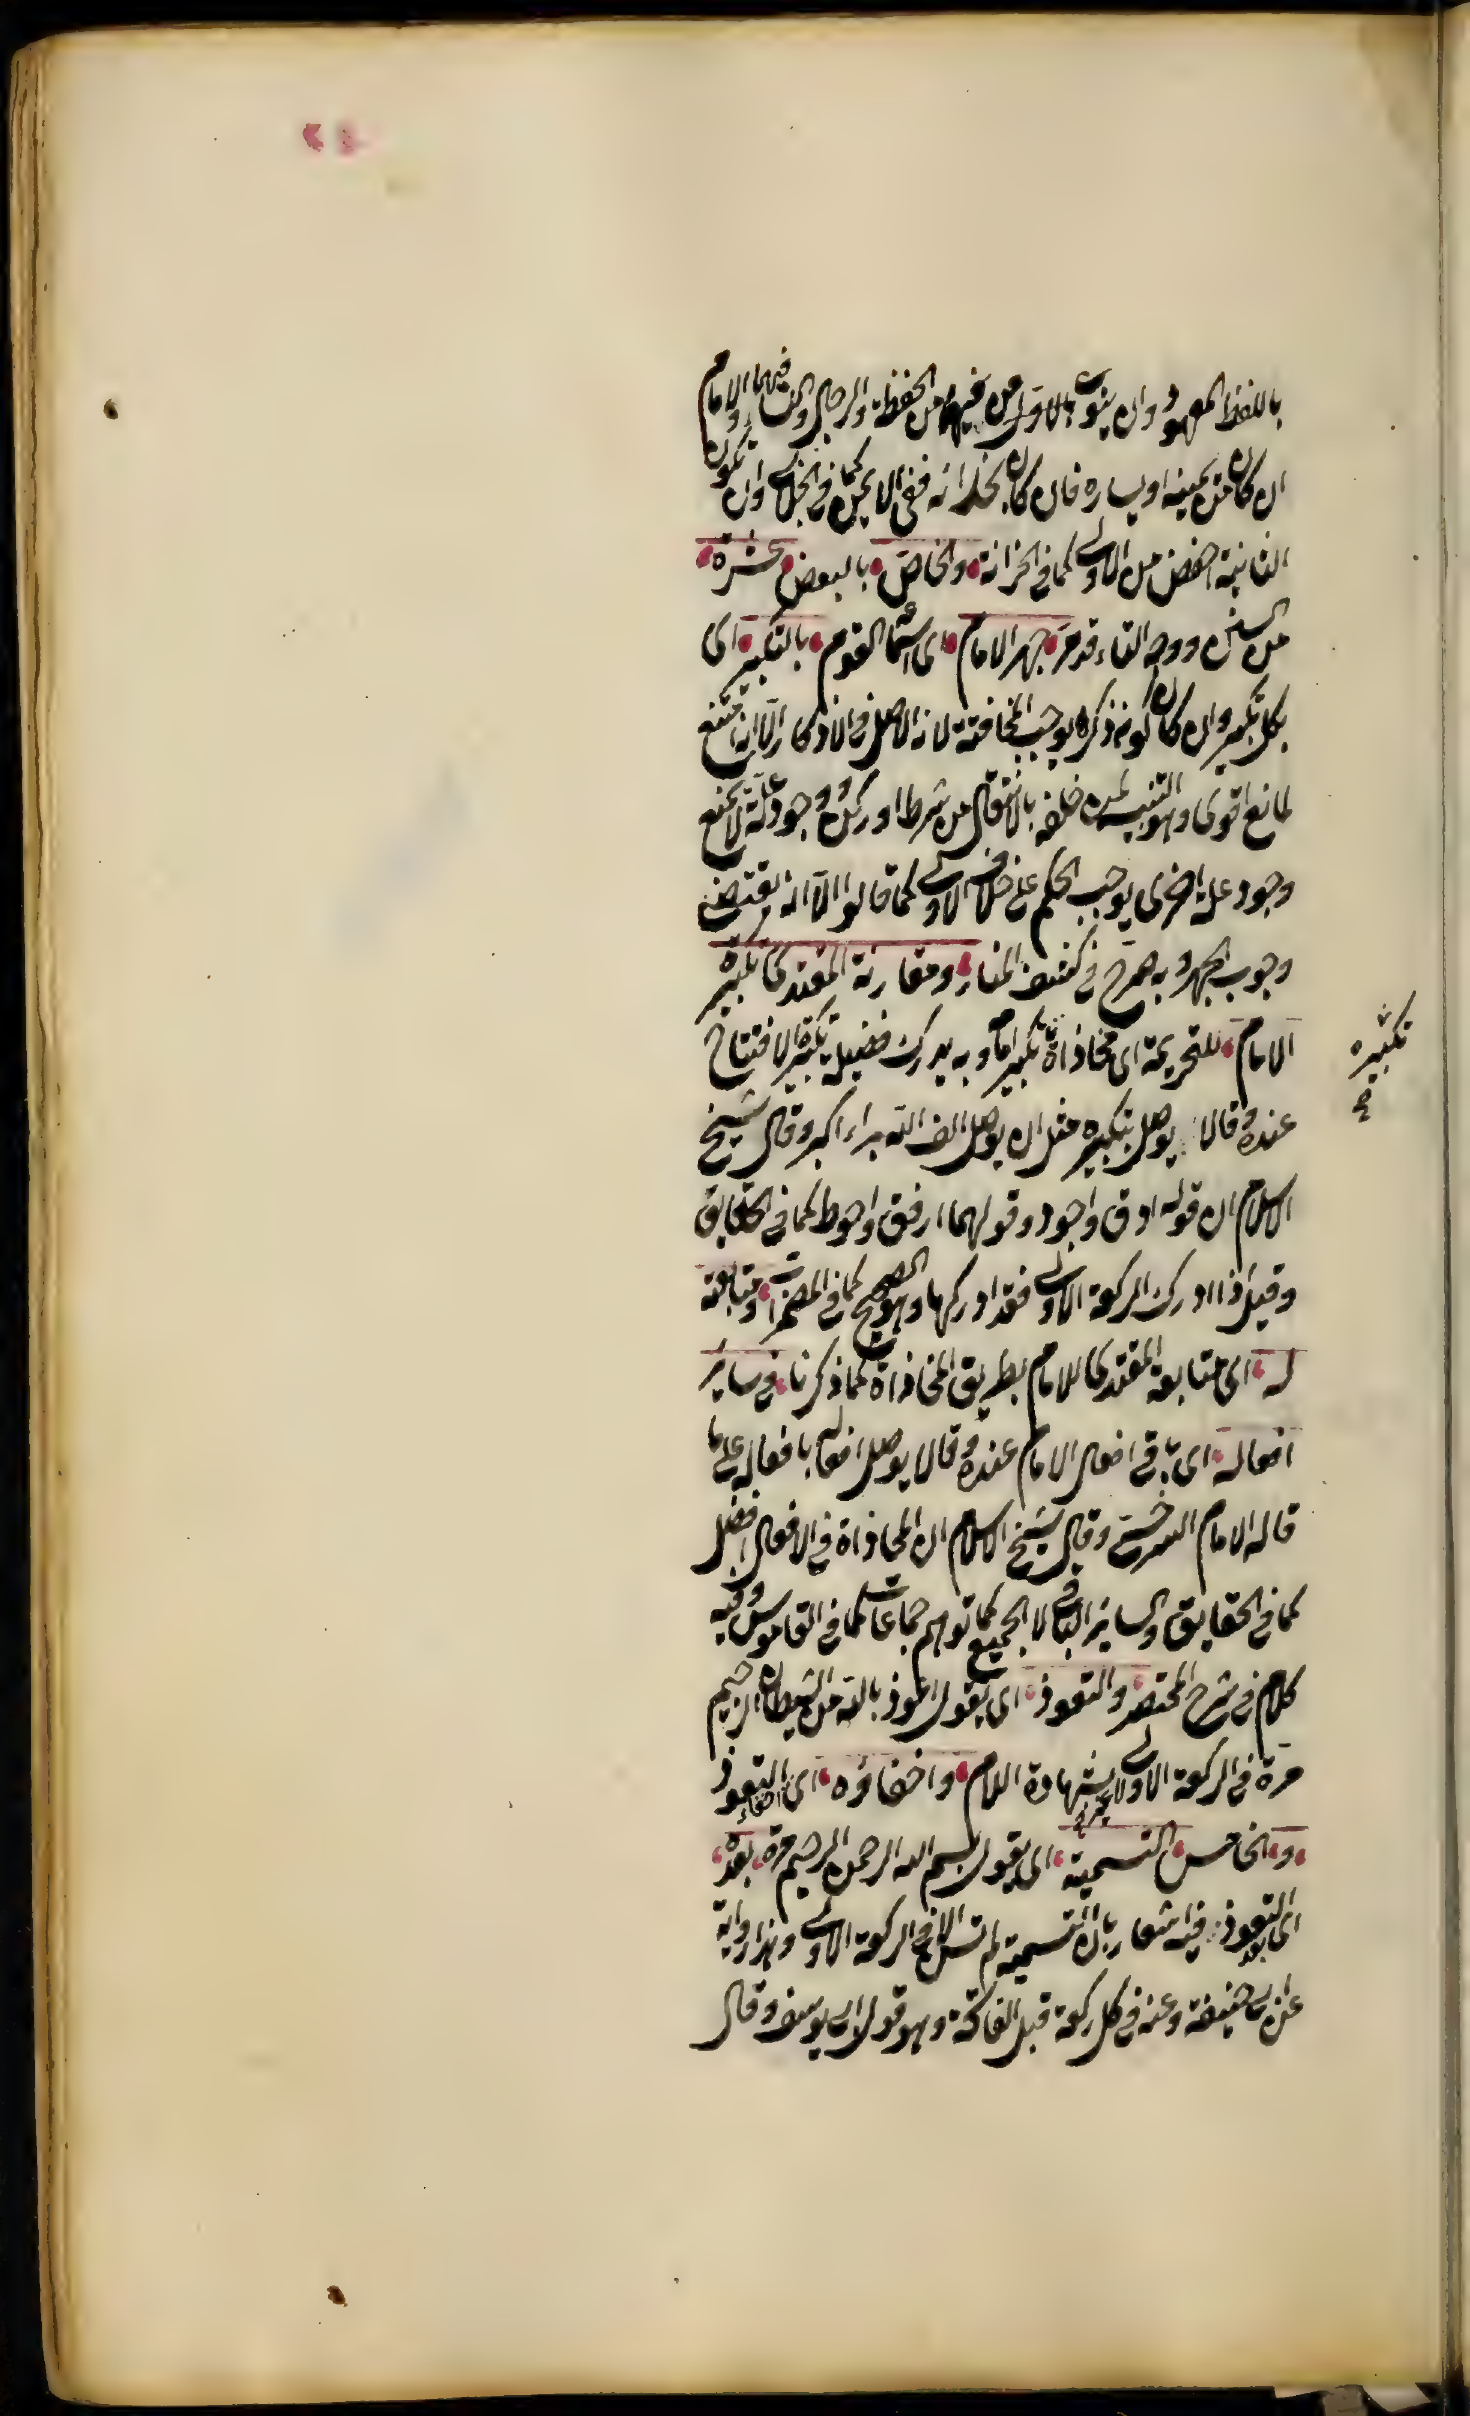 باللفظ المعهود وان ينوى بالاول من فيهم من الحفظة والرجال والنساء فيهما والامام
ان كان من يمينه او يساره فان كان بحذائه ففى الايمن كما فى الجلابى وان تكون
الثانية اخفض من الاولى كما فى الخزانة والخاص بالبعض عشرة
من السنن ووجه التاء قد مر جهر الامام اى اسماع القوم بالتكبير اى
بكل تكبير وان كان كونه ذكرا يوجب المخافتة لانه الاصل فى الاذكار الا انه امتنع
لمانع اقوى وهو التنبيه لمن خلفه بالانتقال من شرط او ركن ووجود علة لا يمنع
وجود علة اخرى يوجب الحكم على خلاف الاولى كما قالوا الا انه يقتضى
وجوب الجهر وبه صرح فى كشف المنار ومقارنة المقتدى تكبيره
الامام للتحريمة اى محاذاة تكبير امامه وبه يدرك فضيلة تكبيرة الافتتاح
عنده وقالا يوصل بتكبيره مثل ان يوصل الف الله براء اكبر وقال شيخ
الاسلام ان قوله ادق واجود وقولهما ارفق واحوط كما فى الحقايق
وقيل اذا ادرك الركعة الاولى فقد ادركها وهو الصحيح كما فى المضمرات ومتابعته
له اى متابعة المقتدى للامام بطريق المحاذاة كما ذكرنا فى ساير
افعاله اى باقى افعال الامام عنده وقالا يوصل افعاله بافعاله على ما
قاله الامام السرخسى وقال شيخ الاسلام ان المحاذاة فى الافعال افضل
كما فى الحقايق والساير الباقى لا الجميع كما توهم جماعات كما فى القاموس وفيه
كلام فى شرح المختصر والتعوذ اى يقول اعوذ بالله من الشيطان الرجيم
مرة فى الركعة الاولى لا غير بشهادة اللام واخفاؤه اى اخفاء التعوذ
و الخامس التسمية اى يقول بسم الله الرحمن الرحيم مرة بعده
اى بعد التعوذ فيه اشعار بان التسمية لم تسن الا فى الركعة الاولى وهذا رواية
عن ابى حنيفة وعنه فى كل ركعة قبل الفاتحة وهو قول ابى يوسف وقال
تكبيره
صح